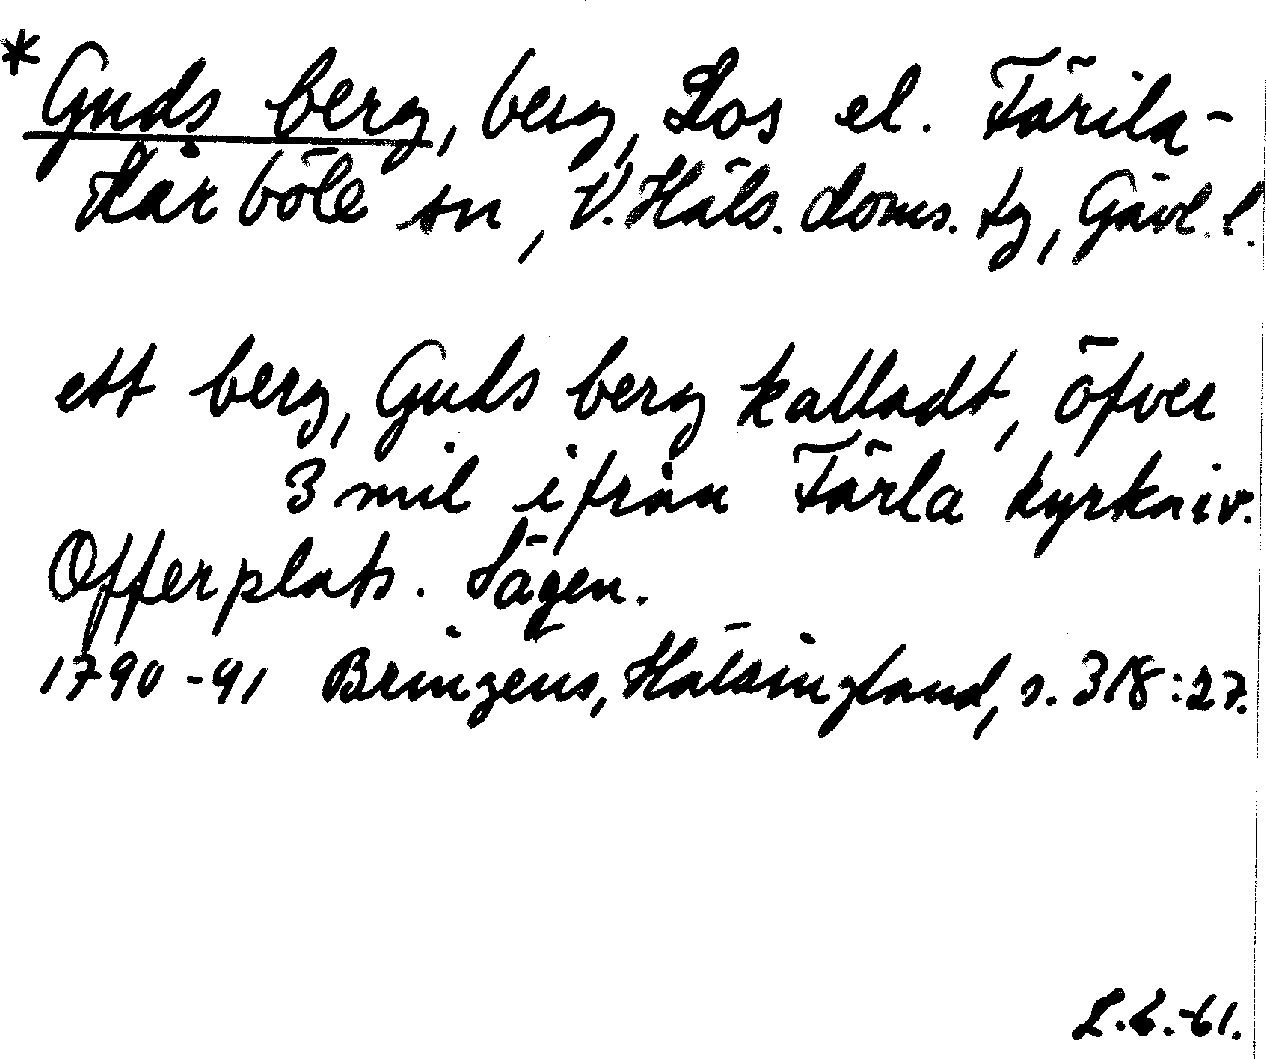 * Guds berg, berg, Los el. Färila-
Kårböle sn, V. Häls. doms. tg, Gävl. l.
ett berg, Guds berg kalladt, öfver
3 mil ifrån Färla kyrka iv.
Offerplats. Sägen.
1790-91 Bringéus, Hälsingland, s. 318:27.
L.L.-61.